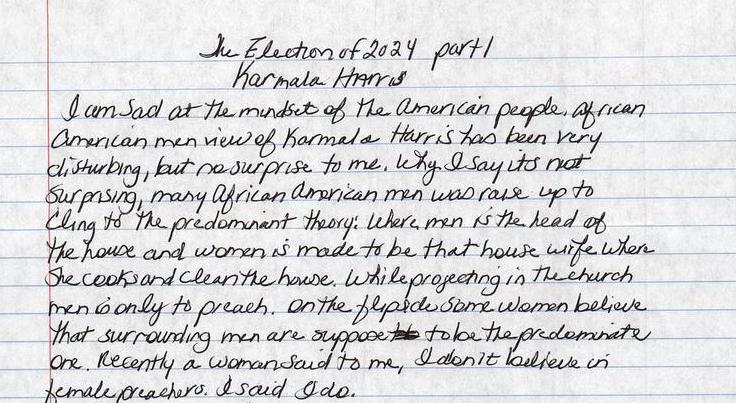 The Election of 2024 part 1
Karmala Harris
I am sad at the mindset of the American people. African
American men view of Karmala Harris has been very
disturbing, but no surprise to me. Why I say its not
surprising, many African American men was raise up to
cling to the predominant theory: Where men is the head of
the house and women is made to be that house wife where
she cooks and clean the house. While projecting in the church
men is only to preach. On the flipside some women believe
that surrounding men are suppose to be the predominate
one. Recently a woman said to me, I don't believe in
female preachers. I said I do.